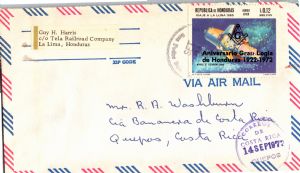 Guy H. Harris
c/o Tela Railroad Company
La Lima, Honduras
ZIP CODE
REPUBLICA DE HONDURAS
Aniversario Gran Logia
de Honduras 1922-1972
VIA AIR MAIL
Mr. R. A. Washburn
Cia Bananera de Costa Rica
Quepos, Costa Rica
CORREOS
COSTA RICA
14 SEP 1972
QUEPOS